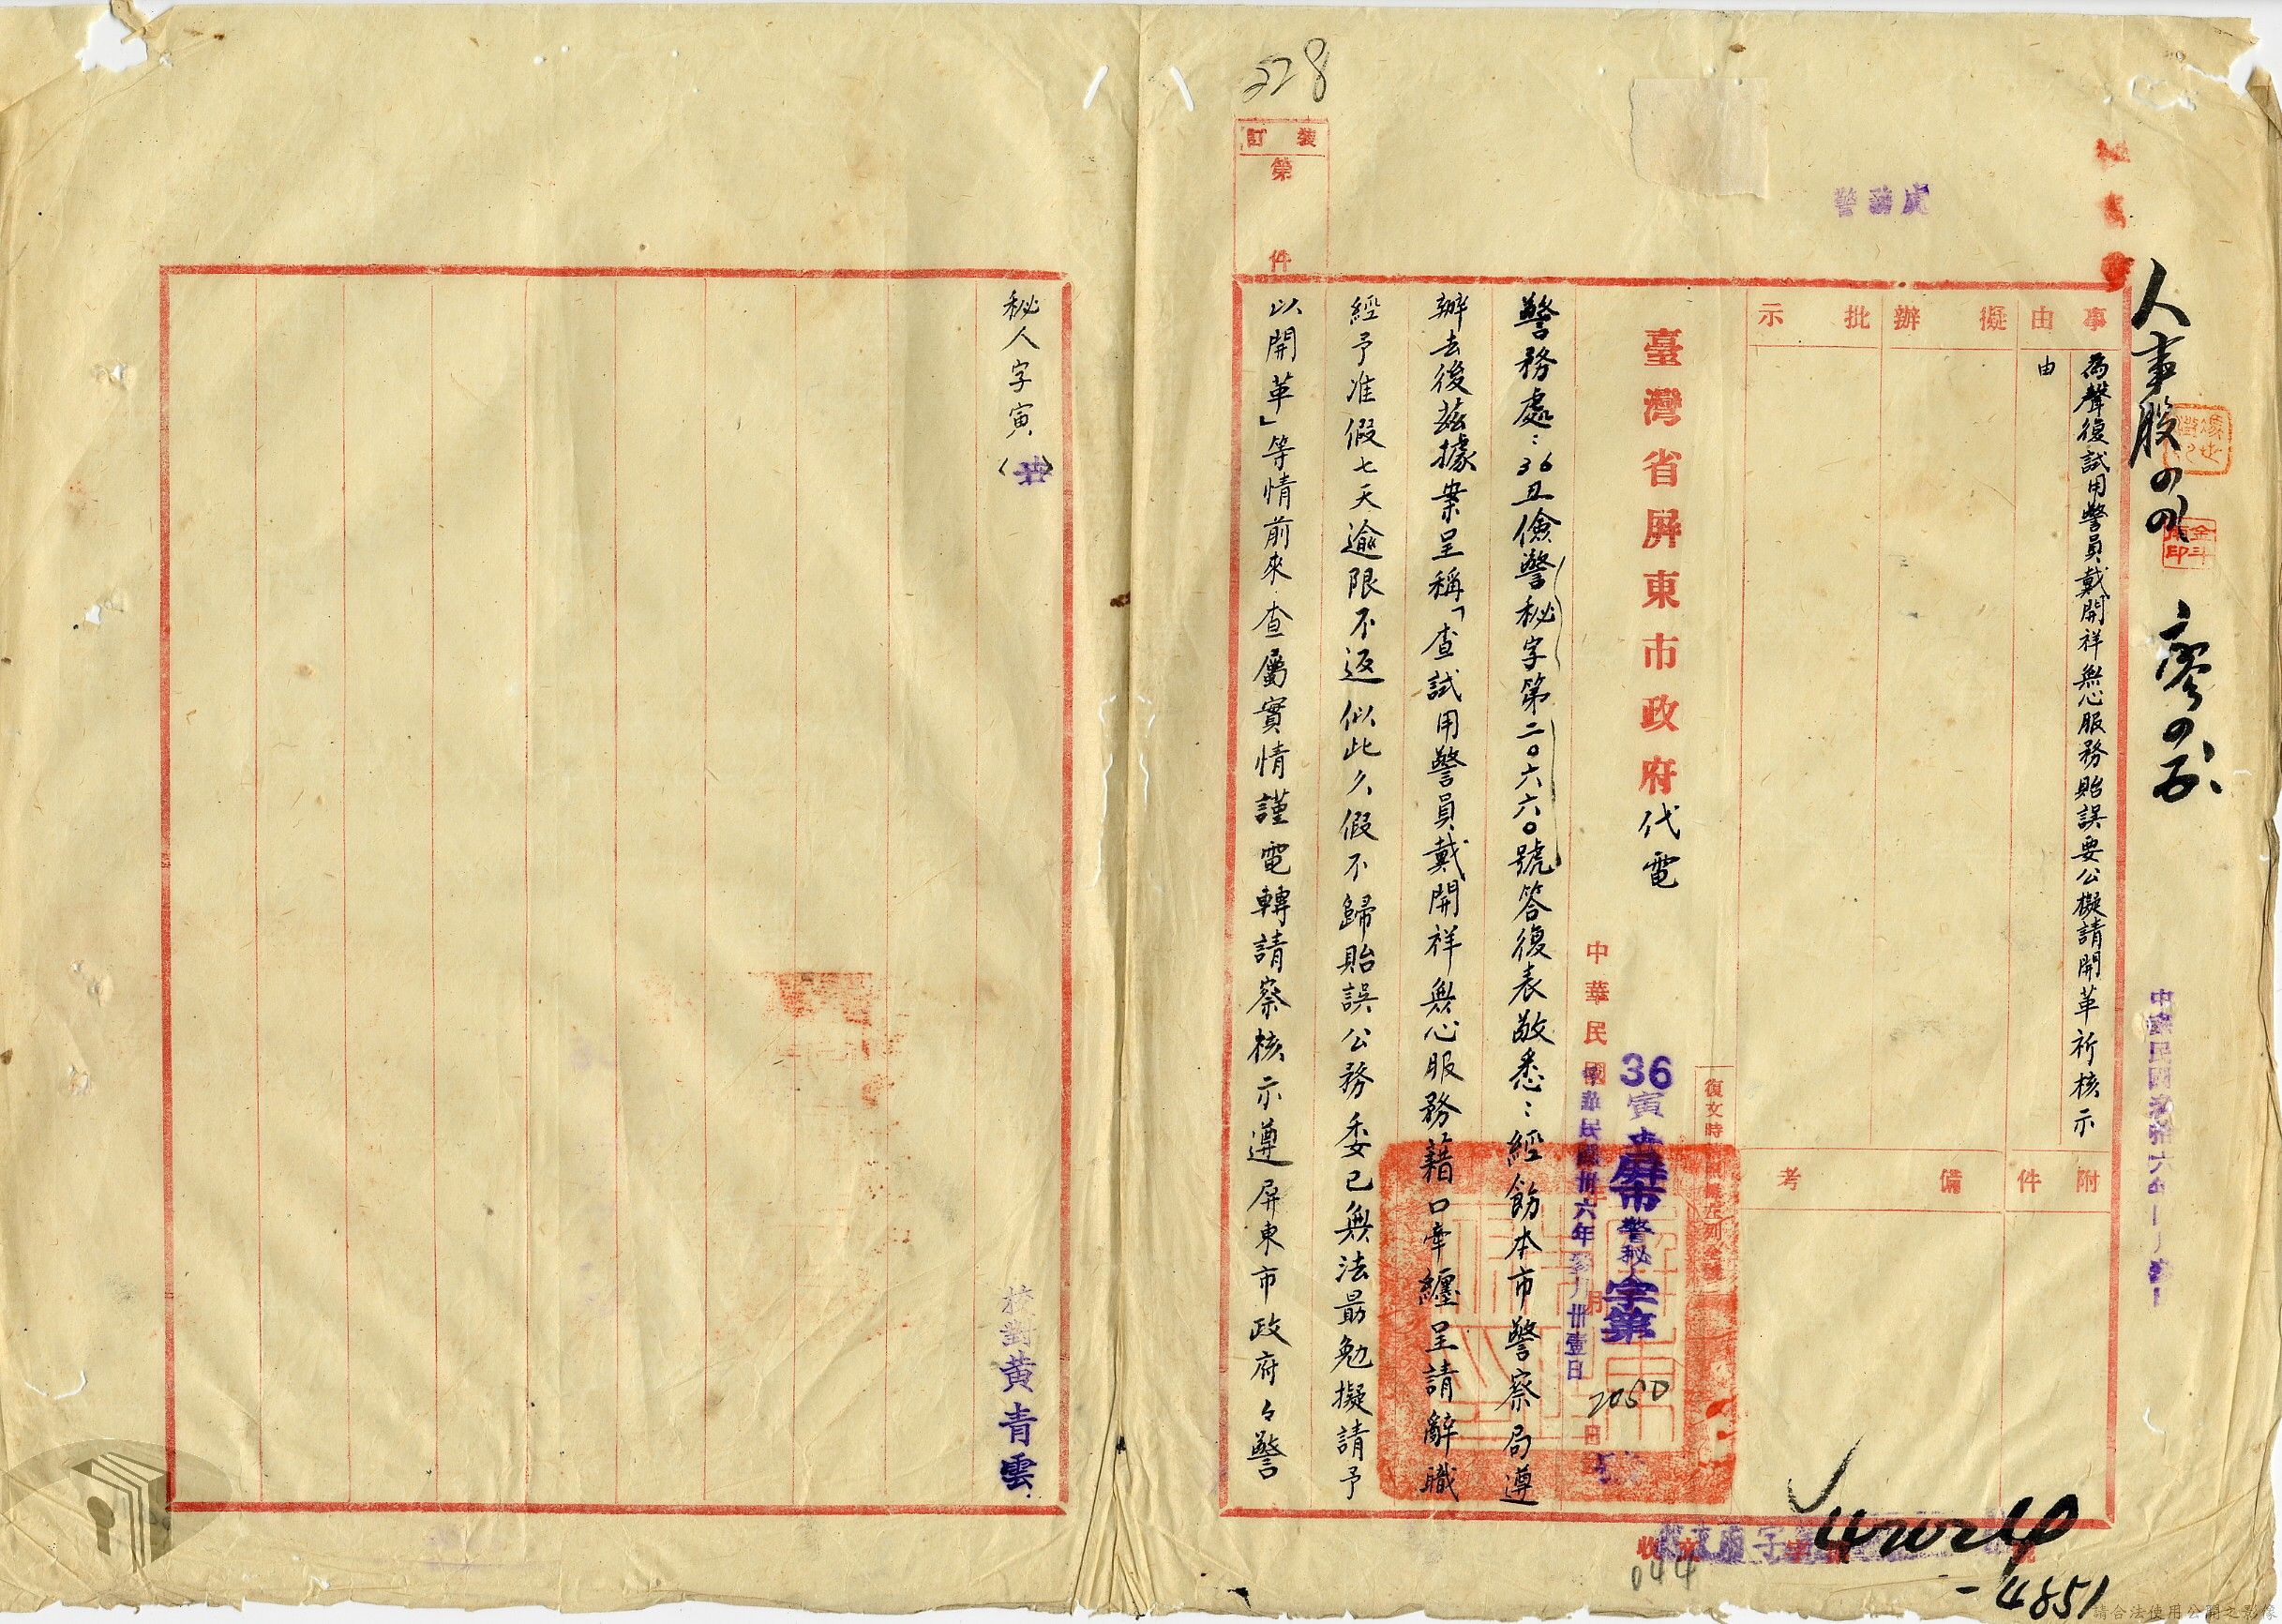 人事股
廖
警務處
事由
為聲復試用警員戴開祥無心服務貽誤要公擬請開革祈核示
由
擬辦
批示
附件
備考
臺灣省屏東市政府代電
36寅
屏市警秘字第
2050
中華民國 年 月 日
中華民國卅六年參月卅壹日
警務處：36丑儉警秘字第二〇六六〇號答復表敬悉：經飭本市警察局遵
辦去後茲據案呈稱「查試用警員戴開祥無心服務藉口牽纏呈請辭職
經予准假七天逾限不返似此久假不歸貽誤公務委已無法勗勉擬請予
以開革」等情前來查屬實情謹電轉請察核示遵屏東市政府々警
裝訂
第 件
328
044
-4851
秘人字寅〈世〉
校對黃青雲
請合法使用公開之影像